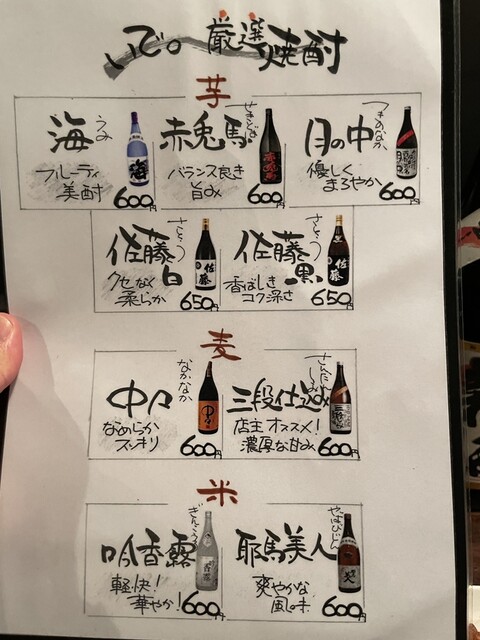 いで。厳選焼酎
芋
海 うみ
フルーティ
美酎
600円
赤兎馬 せきとば
バランス良き
旨み
600円
月の中 つきのなか
優しく
まろやか
600円
佐藤白 さとう
クセなく
柔らか
650円
佐藤黒 さとう
香ばしき
コク深さ
650円
麦
中々 なかなか
なめらか
スッキリ
600円
三段仕込み さんだんじこみ
店主オススメ!
濃厚な甘み
600円
米
吟香露 ぎんこうろ
軽快!
華やか!
600円
耶馬美人 やばびじん
爽やかな
風味
600円